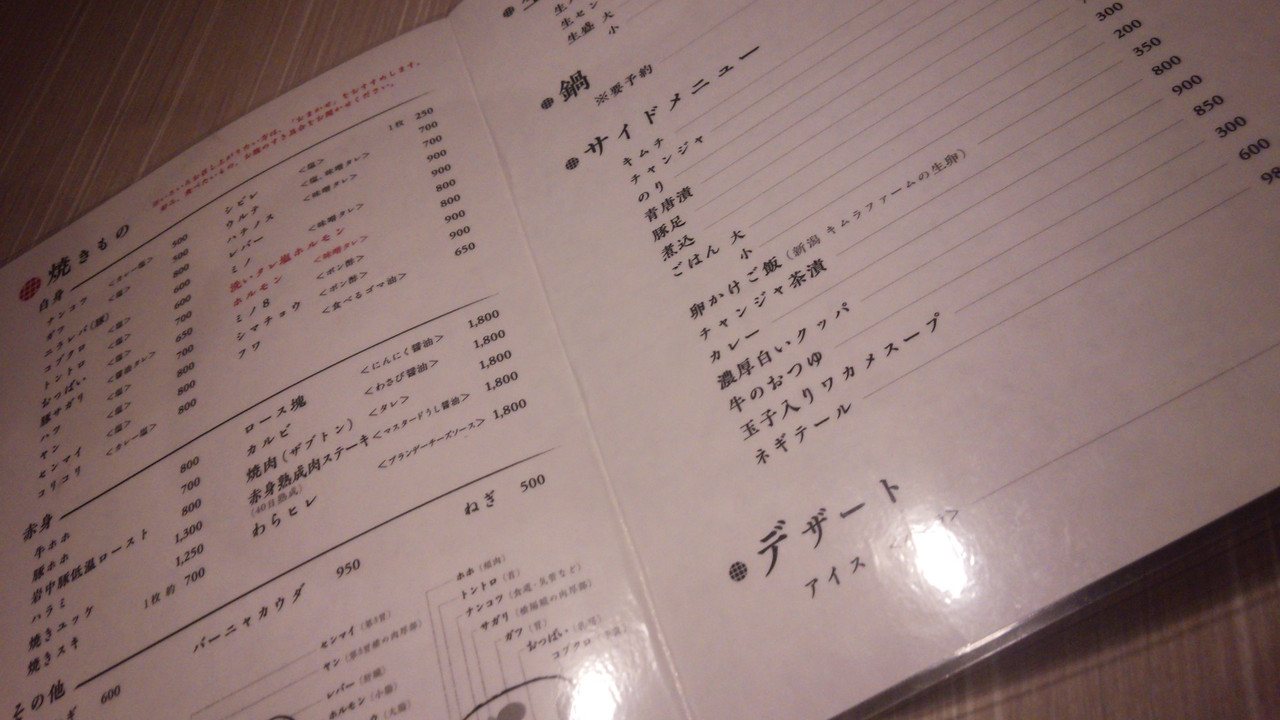 焼きもの
白身
ナンコツ <カレー塩> 500
ガツ <塩> 500
ニラレバ(豚) 800
コブクロ <塩> 600
トントロ <塩> 600
おっぱい <塩> 700
豚サガリ <醤油タレ> 650
ハツ <塩> 700
ヤン <塩> 800
センマイ <塩> 800
コリコリ <カレー塩> 800
シビレ <塩> 1枚 250
ウルテ <塩、味噌タレ> 700
ハチノス <味噌タレ> 700
レバー 900
ミノ <味噌タレ> 800
洗いタレ塩ホルモン 800
ホルモン <味噌タレ> 900
ミノ8 <ポン酢> 900
シマチョウ <ポン酢> 650
フワ <食べるゴマ油>
赤身
牛ホホ 800
豚ホホ 700
岩中豚低温ロースト 800
ハラミ 1,300
焼きユッケ 1,250
焼きスキ 1枚 約 700
ロース塊 <にんにく醤油> 1,800
カルビ <わさび醤油> 1,800
焼肉(ザブトン) <タレ> 1,800
赤身熟成肉ステーキ <マスタードうし醤油> 1,800
(40日熟成)
わらヒレ <ブランデーチーズソース> 1,800
その他
600
バーニャカウダ 950
ねぎ 500
センマイ(第3胃)
ヤン(第3胃横の肉厚部)
レバー(肝臓)
ホルモン(小腸)
ホホ(頬肉)
トントロ(首)
ナンコツ(食道・気管など)
サガリ(横隔膜の肉厚部)
ガツ(胃)
おっぱい(乳房)
コブクロ(子宮)
生盛 大
小
鍋 ※要予約
サイドメニュー
キムチ
チャンジャ
のり
青唐漬
豚足
煮込
ごはん 大
小
卵かけご飯(新潟 キムラファームの生卵)
チャンジャ茶漬
カレー
濃厚白いクッパ
牛のおつゆ
玉子入りワカメスープ
ネギテール
300
200
350
800
900
850
300
600
デザート
アイス